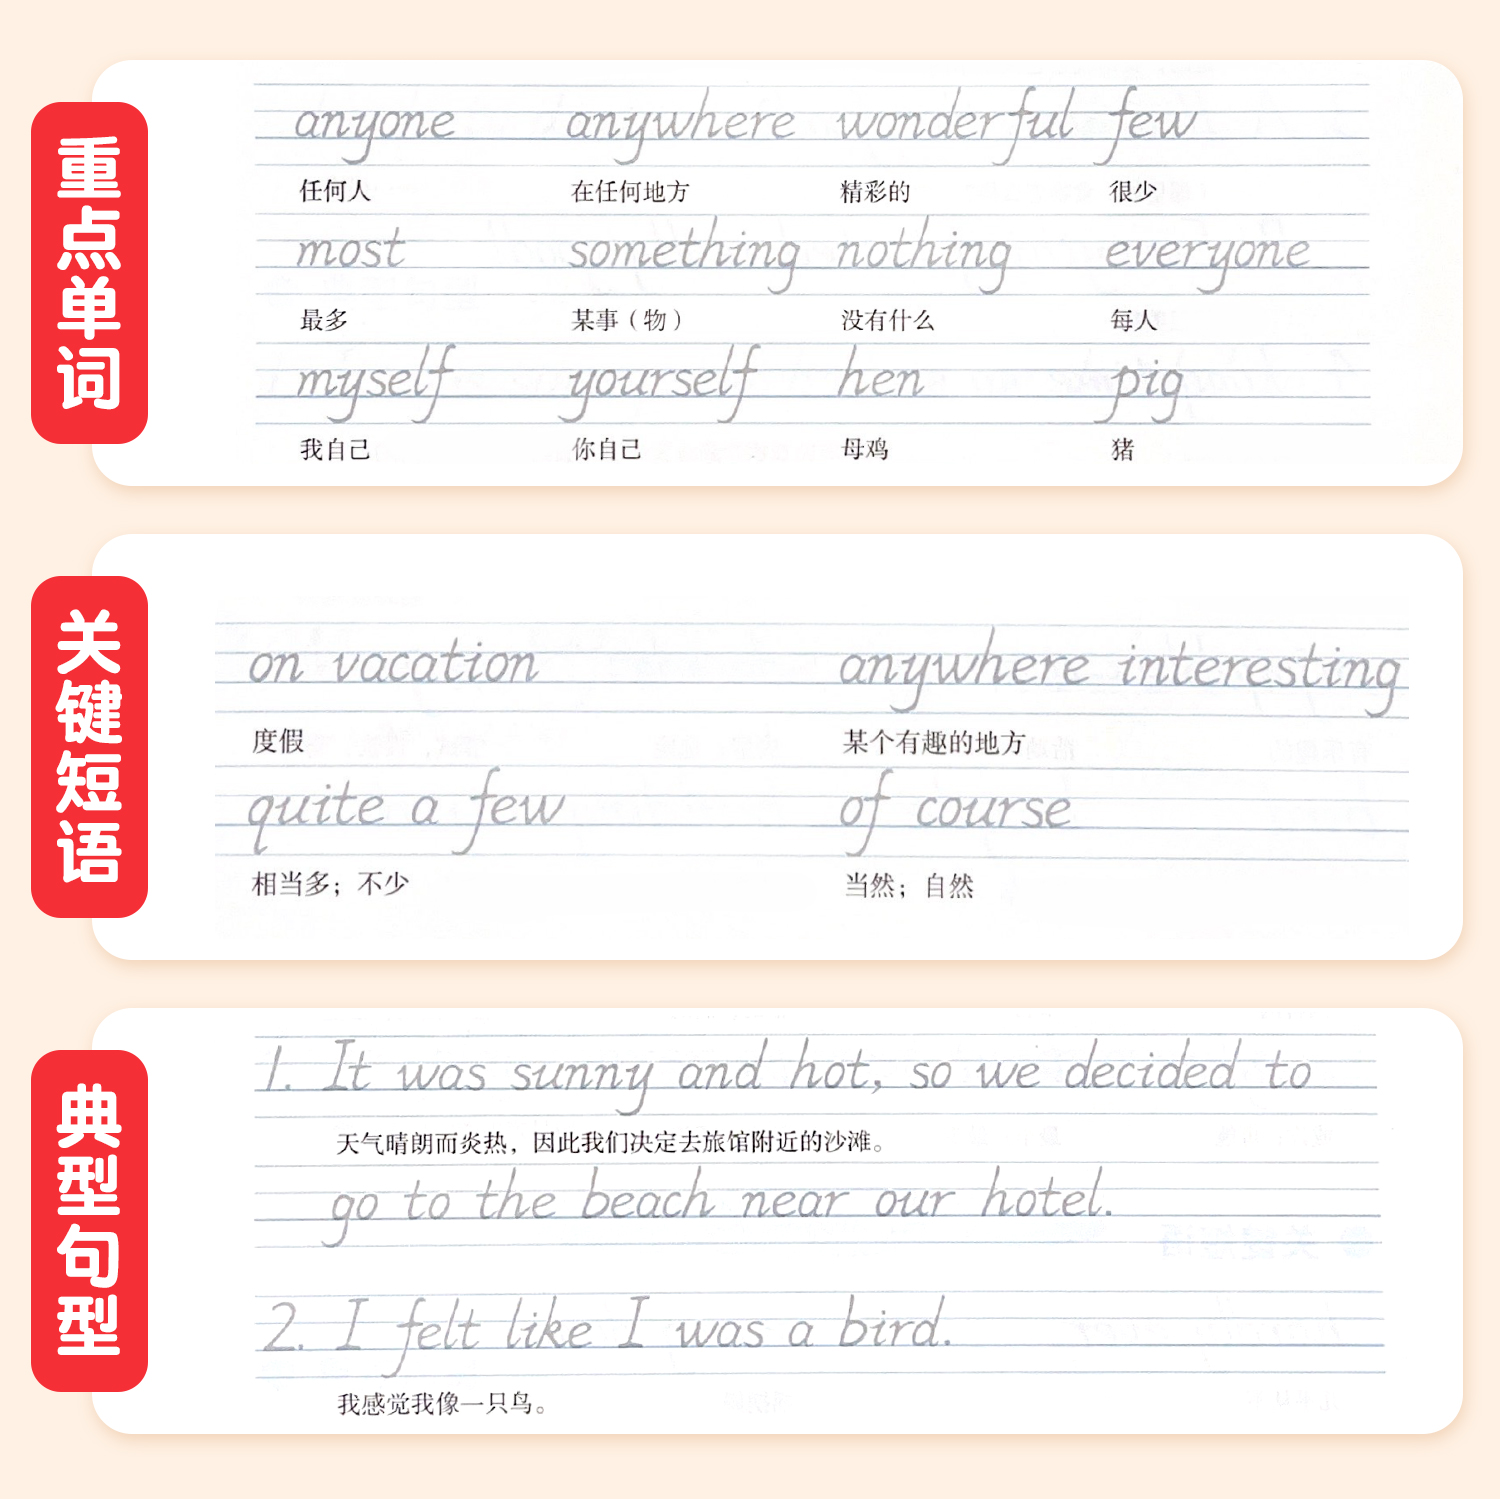 重点单词
anyone anywhere wonderful few
任何人 在任何地方 精彩的 很少
most something nothing everyone
最多 某事（物） 没有什么 每人
myself yourself hen pig
我自己 你自己 母鸡 猪
关键短语
on vacation anywhere interesting
度假 某个有趣的地方
quite a few of course
相当多；不少 当然；自然
典型句型
1. It was sunny and hot, so we decided to
天气晴朗而炎热，因此我们决定去旅馆附近的沙滩。
go to the beach near our hotel.
2. I felt like I was a bird.
我感觉我像一只鸟。